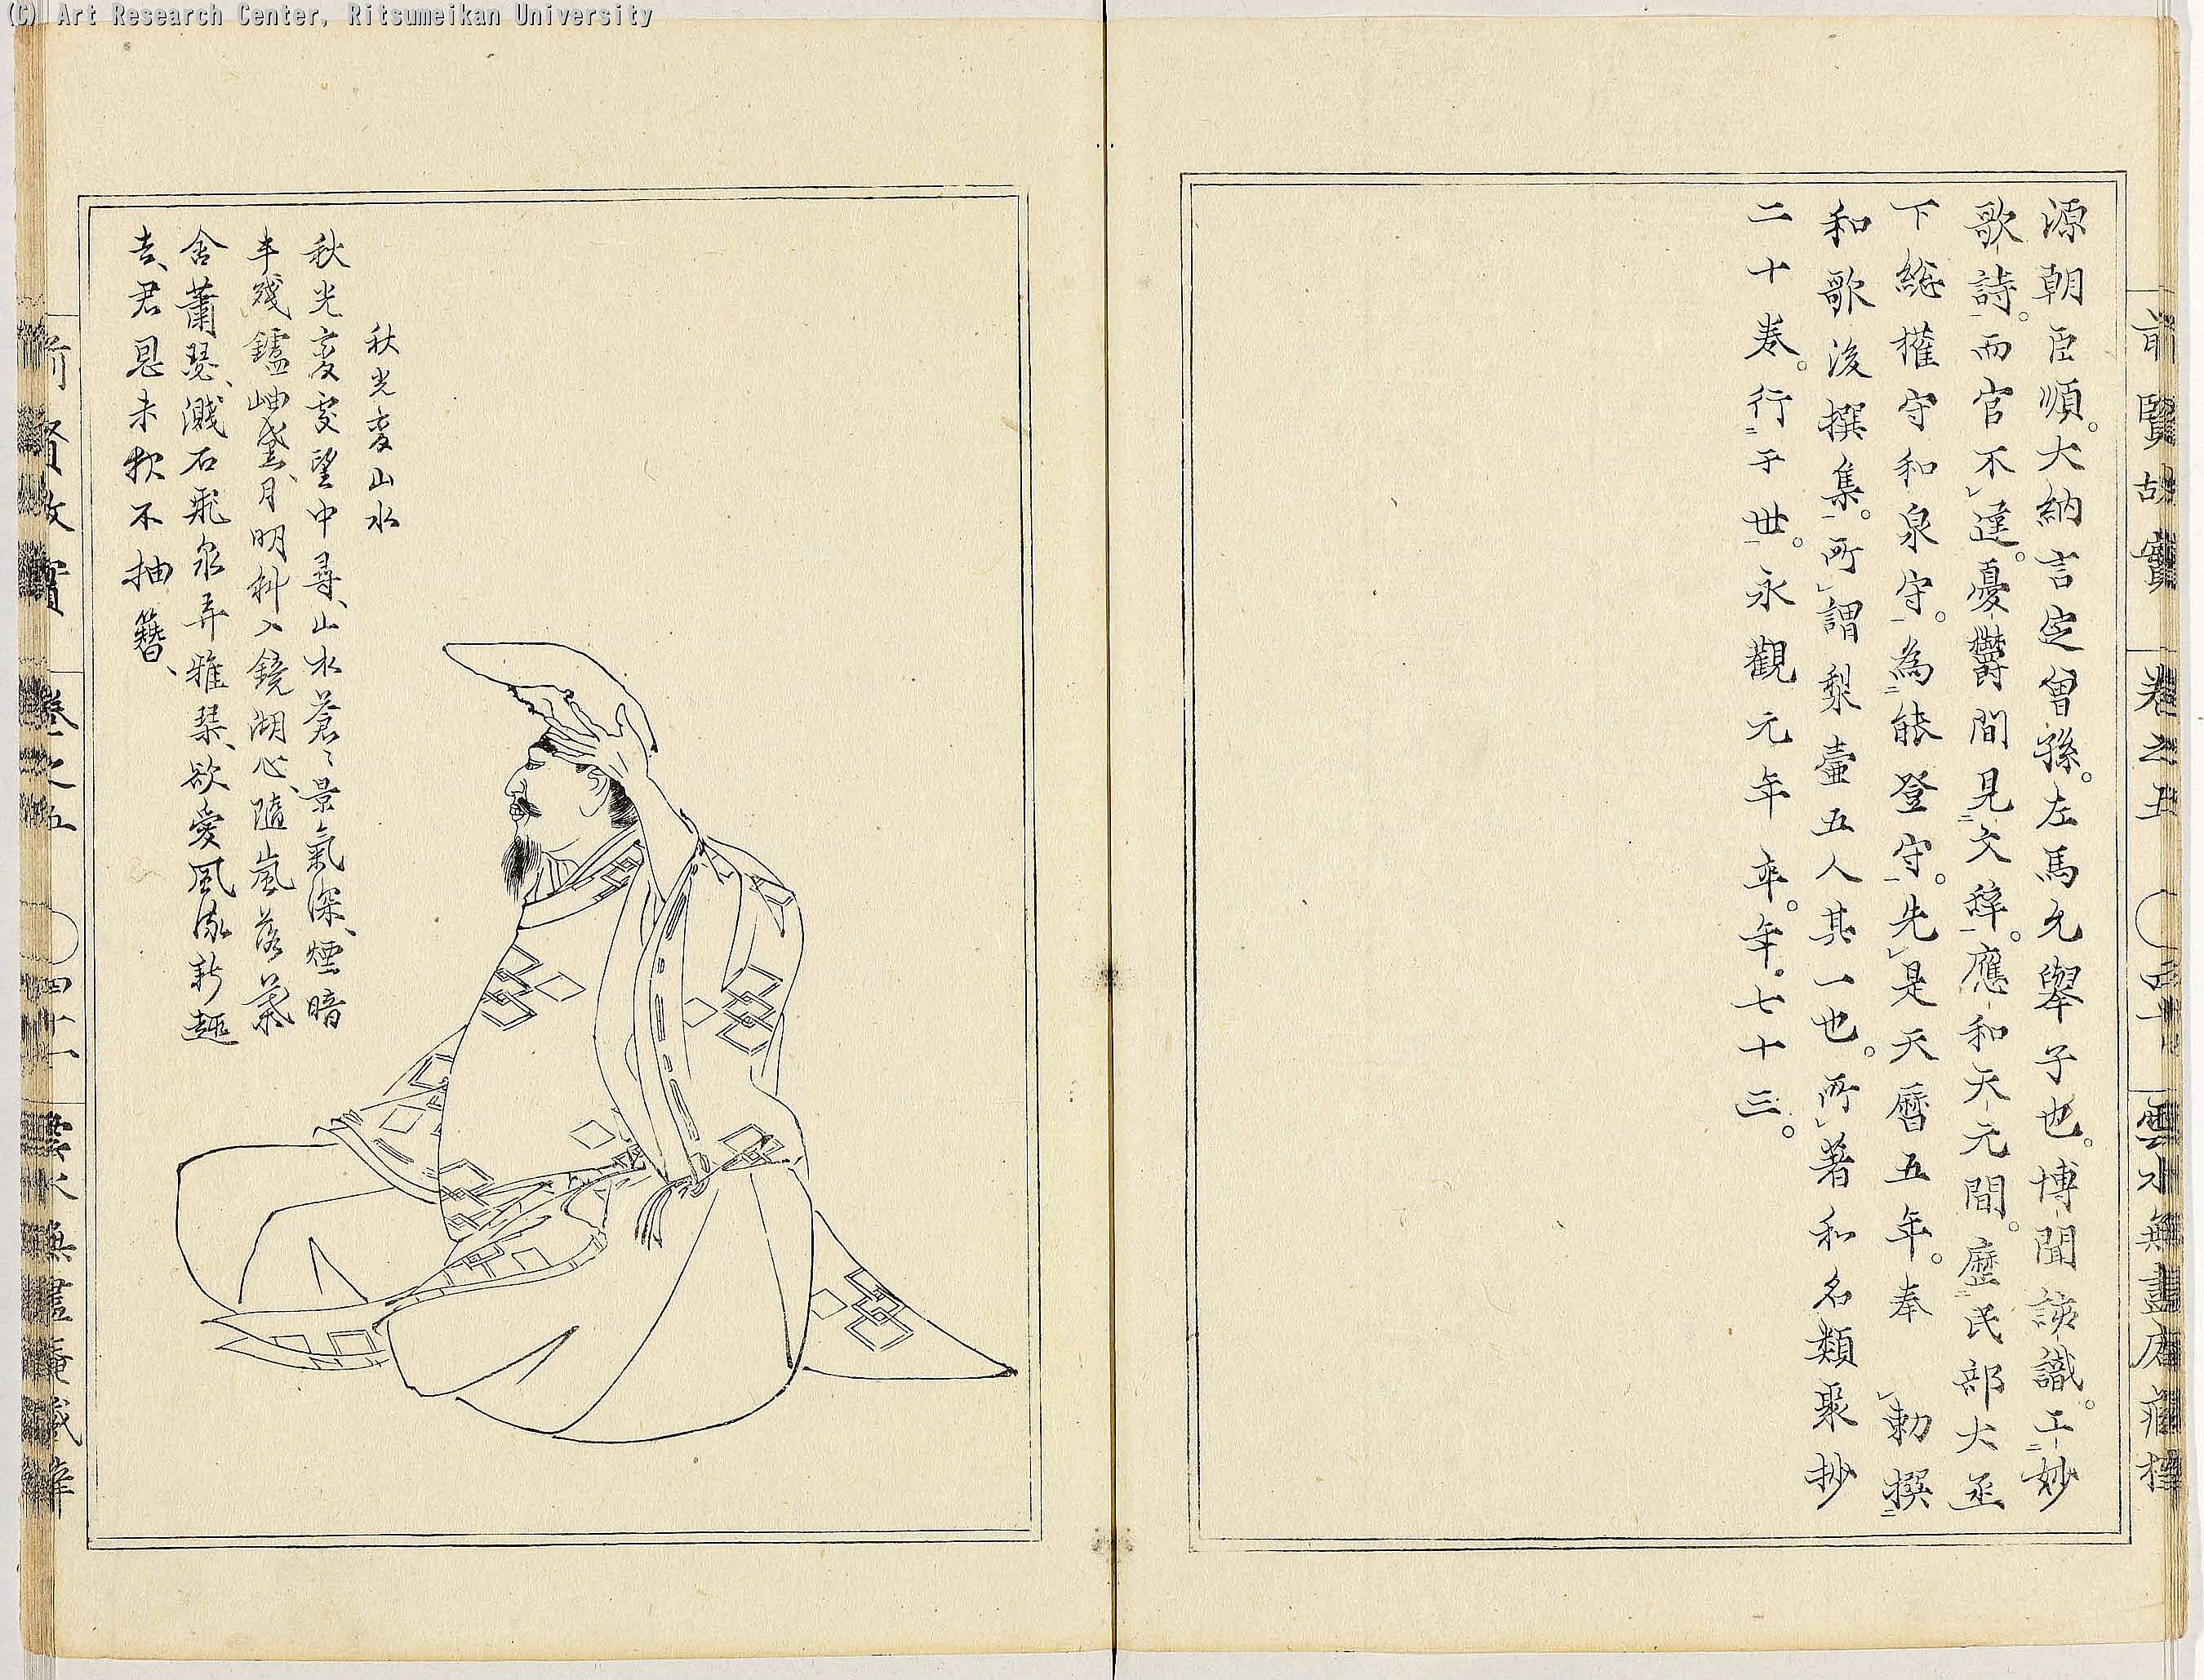 (C) Art Research Center, Ritsumeikan University
前賢故實 卷之五
源朝臣順。大納言定曾孫。左馬允舉子也。博聞該識。工妙
歌詩。而官不達。憂鬱間見文辭。應和天元間。歷民部大丞
下総權守和泉守。為能登守。先是天曆五年。奉 勅撰
和歌後撰集。所謂梨壷五人其一也。所著和名類聚抄
二十卷。行于世。永觀元年卒。年七十三。
秋光変山水
秋光変變望中尋、山水蒼〻景氣深、煙暗
半殘鑪岫黛、月明斜入鏡湖心、隨嵐落葉
含蕭瑟、濺石飛泉弄雅琴、欲愛風流新趣
去、君恩未報不抽簪、
前賢故實 卷之五 四十一 雲水無盡庵藏梓